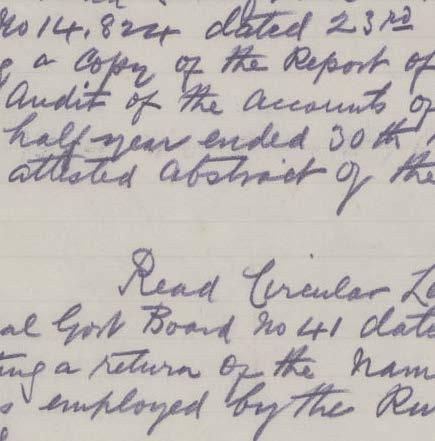 No 14,824 dated 23rd
g a Copy of the Report of
Audit of the Accounts of
half year ended 30th
attested Abstract of the
Read Circular L
al Govt Board No 41 date
ting a return of the Nam
s employed by the Ru